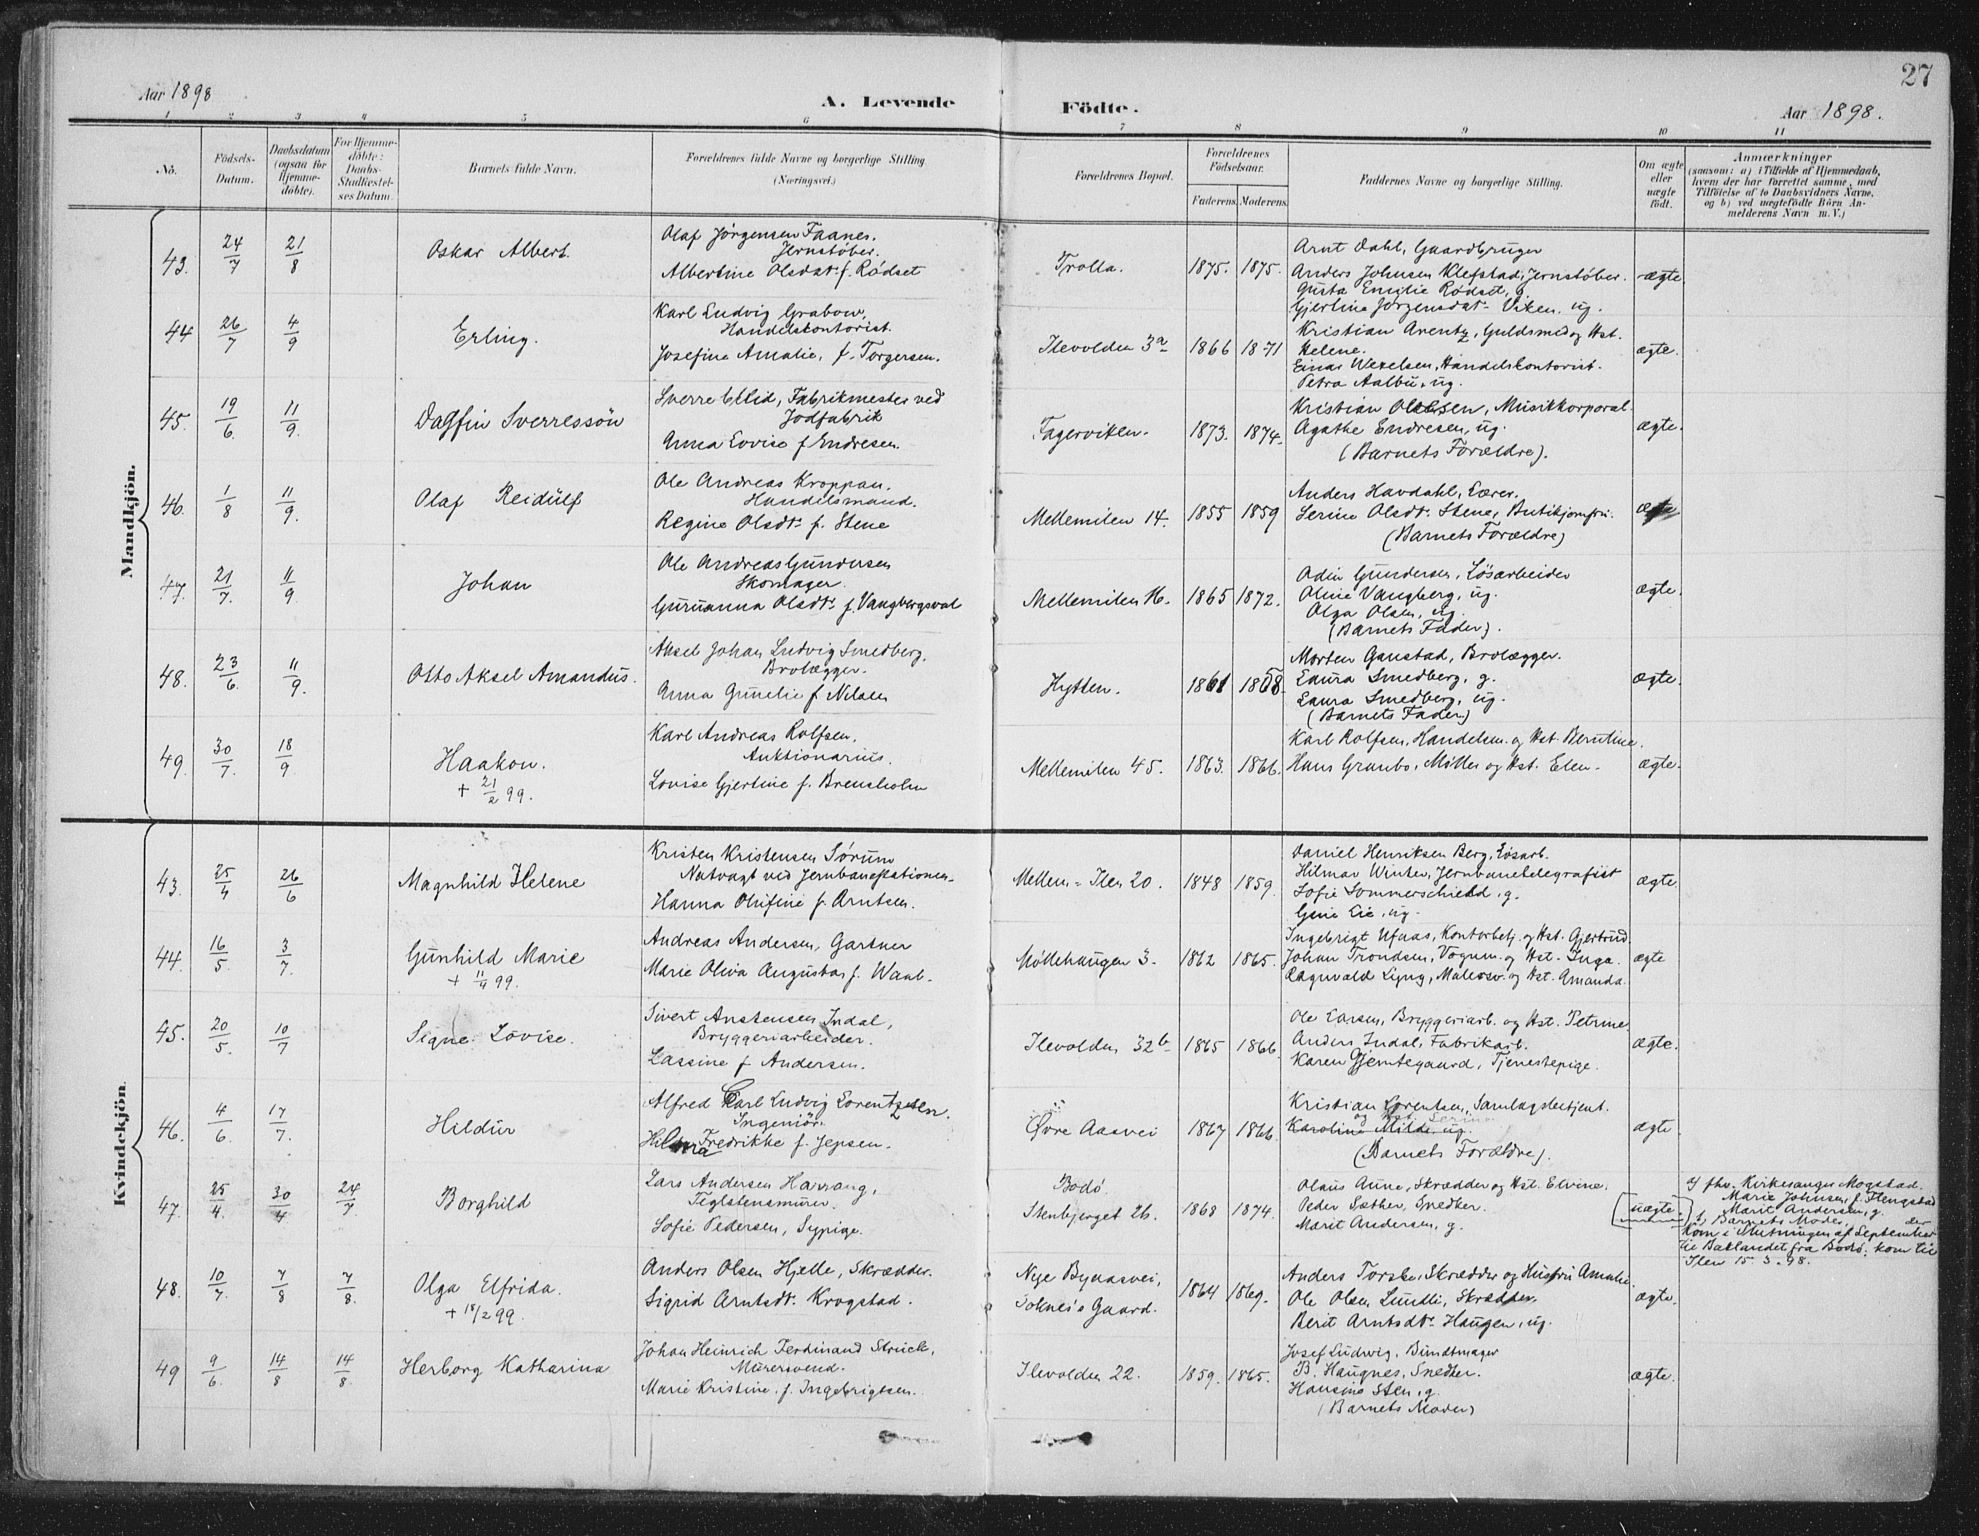 27
Aar 1898
A. Levende
Födte.
Aar 1898.
1 2 3 4 5 6 7 8 9 10 11
No.
Födsels-Datum.
Daabsdatum (ogsaa for Hjemme-döbte).
For Hjemme-döbte: Daabs-Stadfæstel-ses Datum.
Barnets fulde Navn.
Forældrenes fulde Navne og borgerlige Stilling
(Næringsvei.)
Forældrenes Bopæl.
Forældrenes Födselsaar.
Faderens. Moderens.
Faddernes Navne og borgerlige Stilling.
Om ægte eller uægte födt.
Anmærkninger
(saasom: a) i Tilfælde af Hjemmedaab,
hvem der har forrettet samme, med
Tilföielse af to Daabsvidners Navne,
og b) ved uægtefödte Börn An-
melderens Navn m. V.)
Mandkjön.
43. 24/7 21/8 Oskar Albert
Olaf Jörgensen Faanes.
Jernstøber.
Albertine Olsdat. f. Rödset
Trolla. 1875. 1875.
Arnt Dahl, Gaardbruger
Anders Johnsen Klefstad, Jernstøber.
Gusta Emilie Rödset, g
Gjertine Jörgensdat. Viken, ug.
ægte
44 26/7 4/9 Erling.
Karl Ludvig Grabow,
Handelskontorist.
Josefine Amalie, f. Torgersen.
Ilevolden 3a 1866 1871
Kristian Arentz, Guldsmed og Hst.
Helene.
Einar Wexelsen, Handelskontorist.
Petra Aalbu, ug.
ægte.
45. 19/6. 11/9. Dagfin Sverressön
Sverre Ellid, Fabrikmester ved
Jodfabrik
Anna Lovise f Endresen.
Fagerviken. 1873. 1874.
Kristian Olsen, Musikkorporal.
Agathe Endresen, ug.
(Barnets Forældre).
ægte.
46. 1/8 11/9. Olaf Reidulf
Ole Andreas Kroppan.
Handelsmand.
Regine Olsdt. f. Stene
Mellemilen 14. 1855 1859
Anders Havdahl, Lærer.
Serine Olsdt. Stene, Butikjomfru.
(Barnets Forældre)
ægte
47. 21/7. 11/9 Johan
Ole Andreas Gundersen
Skomager.
Guruanna Olsdt. f. Vangbergsval
Mellemilen 16. 1865 1872.
Odin Gundersen, Løsarbeider
Oline Vangberg, ug.
Olga Olsen, ug.
(Barnets Fader).
ægte.
48. 23/6. 11/9. Otto Aksel Amandus.
Aksel Johan Ludvig Smedberg,
Brolægger.
Anna Gunelie f Nilsen
Hytten. 1861 1868.
Morten Ganstad, Brolægger.
Laura Smedberg, g.
Laura Smedberg, ug.
(Barnets Fader)
ægte.
49. 30/7. 18/9 Haakon.
+ 21/2 99.
Karl Andreas Rolfsen.
Auktionarius.
Lovise Gjertine f. Brensholm
Mellemilen 45. 1863. 1866.
Karl Rolfsen, Handelsm. og Hst. Berntine.
Hans Granbo, Møller og Hst. Elen.
ægte.
Kvindekjön.
43. 25/4 26/6 Magnhild Helene
Kristen Kristensen Sørum
Natvagt ved Jernbanestationen
Hanna Olufine f. Arntsen.
Mellem=Ilen 20. 1848 1859.
Daniel Henriksen Berg, Løsarb.
Hilmar Winter, Jernbanetelegrafist
Sofie Sommerschield, g.
Gine Lie, ug.
ægte.
44. 16/5. 3/7. Gunhild Marie
+ 11/4 99.
Andreas Andersen, Gartner
Marie Oliva Augusta f. Waal.
Møllehaugen 3. 1862 1865.
Ingebrigt Ufaas, Kontorbetj. og Hst. Gjertrud.
Johan Trondsen, Vognm. og Hst. Inga.
Ragnvald Lyng, Malersv. og Hst. Amanda.
ægte
45. 20/5. 10/7 Signe Lovise.
Sivert Anstensen Indal,
Bryggeriarbeider.
Lassine f Andersen.
Ilevolden 32b 1865 1866.
Ole Larsen, Bryggeriarb. og Hst. Petrine
Anders Indal, Fabrikarb.
Karen Gjemtegaard, Tjenestepige.
ægte.
46. 4/6 17/7. Hildur
Alfred Carl Ludvig Lorentzen.
Ingeniör.
Hilma Fredrikke f. Jepsen.
Øvre Aasvei 1867 1866
Kristian Lorentsen, Samlagsbetjent.
og Hst.
Karoline Milde, ug.
(Barnets Forældre).
ægte
47. 25/4. 30/4 24/7 Borghild
Lars Andersen Harrang,
Teglstensmurer.
Sofie Pedersen, Sypige.
Bodö.
Stenbjerget 2b. 1868 1874.
Olaus Aune, Skrædder og Hst. Elvine.
Peder Sæther, Snedker.
Marit Andersen, g.
[uægte.]
a) fhv. Kirkesanger Mogstad.
Marie Johnsen, f. Flengstad
Marit Andersen, g.
b) Barnets Moder, der
kom i Slutningen af September
til Baklandet fra Bodö; kom til
Ilen 15-3-98.
48. 10/7. 7/8 7/8. Olga Elfrida.
+ 18/2 99.
Anders Olsen Hjelle, Skrædder.
Sigrid Arntsdt. Krogstad.
Nye Byaasvei,
Toknes's Gaard. 1864 1869.
Anders Torske, Skrædder og Hustru Amalie
Ole Olsen Lundli, Skrædder.
Berit Arntsdt. Haugen, ug.
ægte.
49 9/6. 14/8 14/8. Herborg Katharina
Johan Heinrich Ferdinand Struck,
Murersvend.
Marie Kristine f. Ingebrigtsen.
Ilevolden 22. 1859. 1865.
Josef Ludvig, Bundtmager
B. Haugnes, Snedker.
Hansine Sten, g.
(Barnets Moder)
ægte.